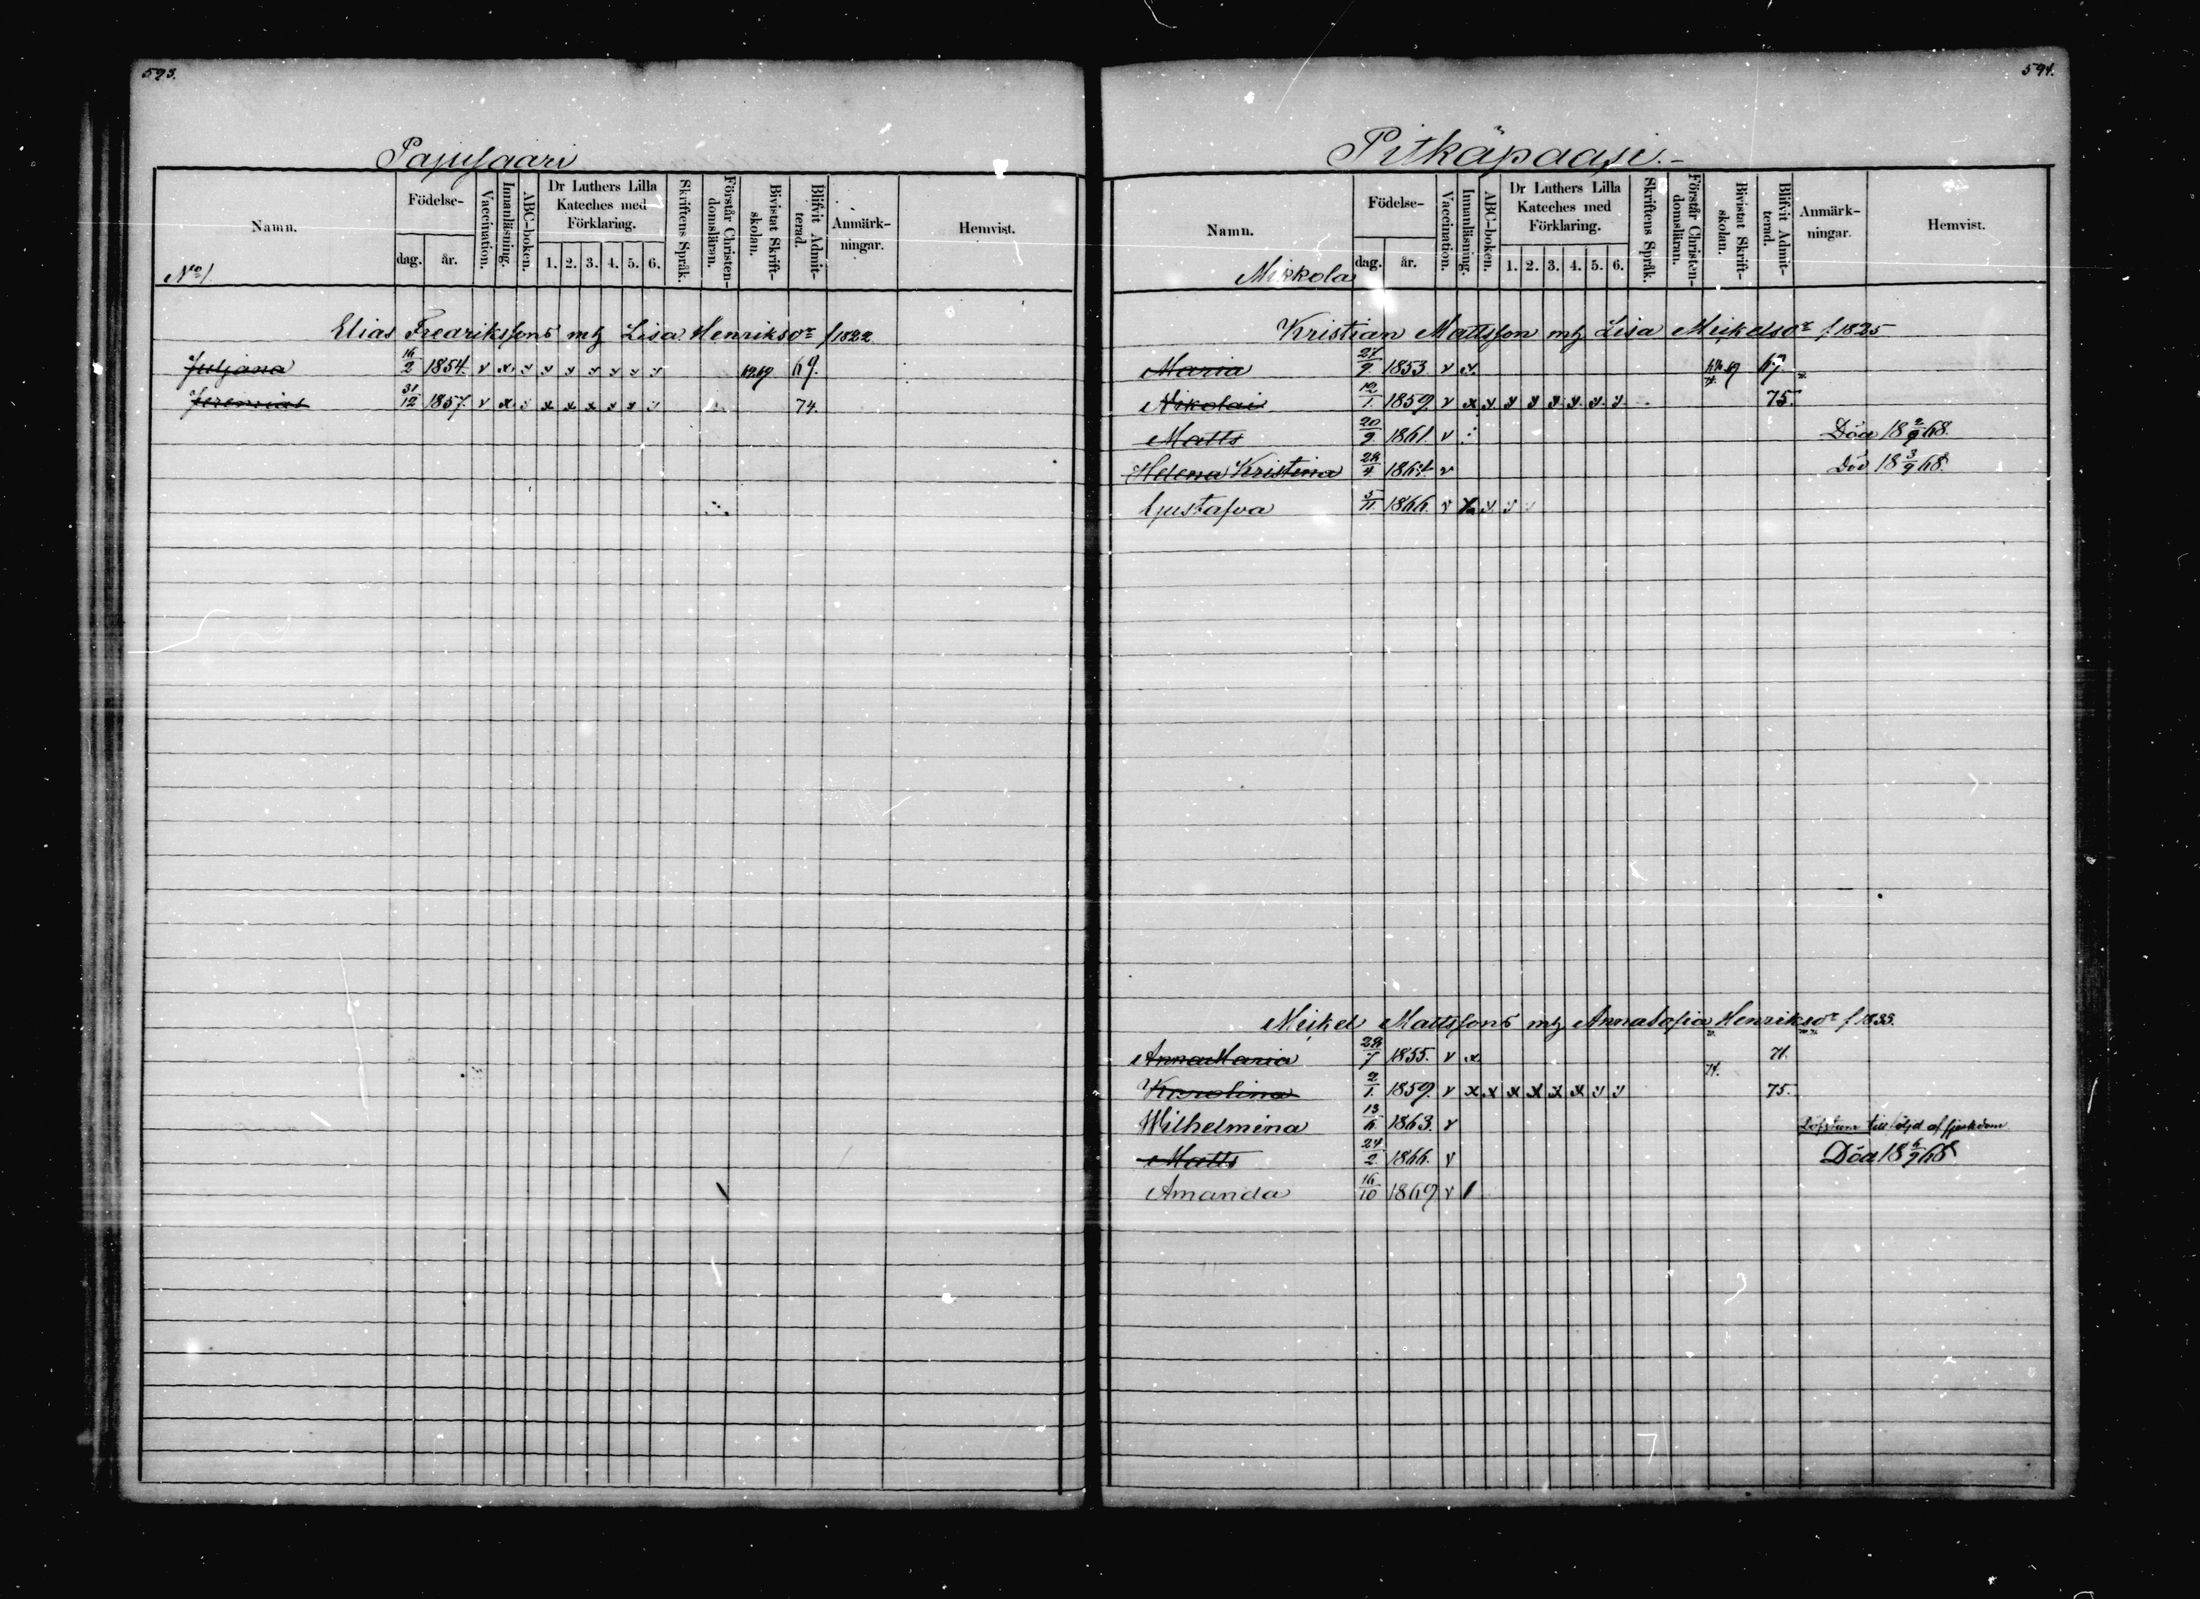 593.
Pajusaari
Namn.
Födelse-
dag. år.
Vaccination.
Innanläsning.
ABC-boken.
Dr Luthers Lilla Kateches med Förklaring.
1. 2. 3. 4. 5. 6.
Skriftens Språk.
Förstår Christendomsläran.
Bivistat Skriftskolan.
Blifvit Admitterad.
Anmärkningar.
Hemvist.
No 1.
Elias Fredrikssons mhj Lisa Henriksdr f 1822
Juljana 16/2 1854. v x 69.
Jeremias 31/12 1857. v x 74.
594.
Pitkäpaasi.
Namn.
Födelse-
dag. år.
Vaccination.
Innanläsning.
ABC-boken.
Dr Luthers Lilla Kateches med Förklaring.
1. 2. 3. 4. 5. 6.
Skriftens Språk.
Förstår Christendomsläran.
Bivistat Skriftskolan.
Blifvit Admitterad.
Anmärkningar.
Hemvist.
Mikkola
Kristian Mattsson mhj Lisa Meikelsdr f 1825
Maria 27/9 1853 v x
Nikolai 1859. v x 75.
Matts 20/9 1861 v Död 18 2/9 68.
Helena Kristina 1864 v Död 18 3/9 68.
Gustafva 5/11 1866. v
Meikel Mattssons mhj Anna Sofia Henriksdr f 1833.
Anna Maria 28/7 1855. v x 71.
Karolina 2/1 1859. v x x x x x x 74. 75.
Wilhelmina 1863. v Döfstum till följd af sjukdom
Matts 24/2 1866. v Död 18 68
Amanda 16/10 1869 v /